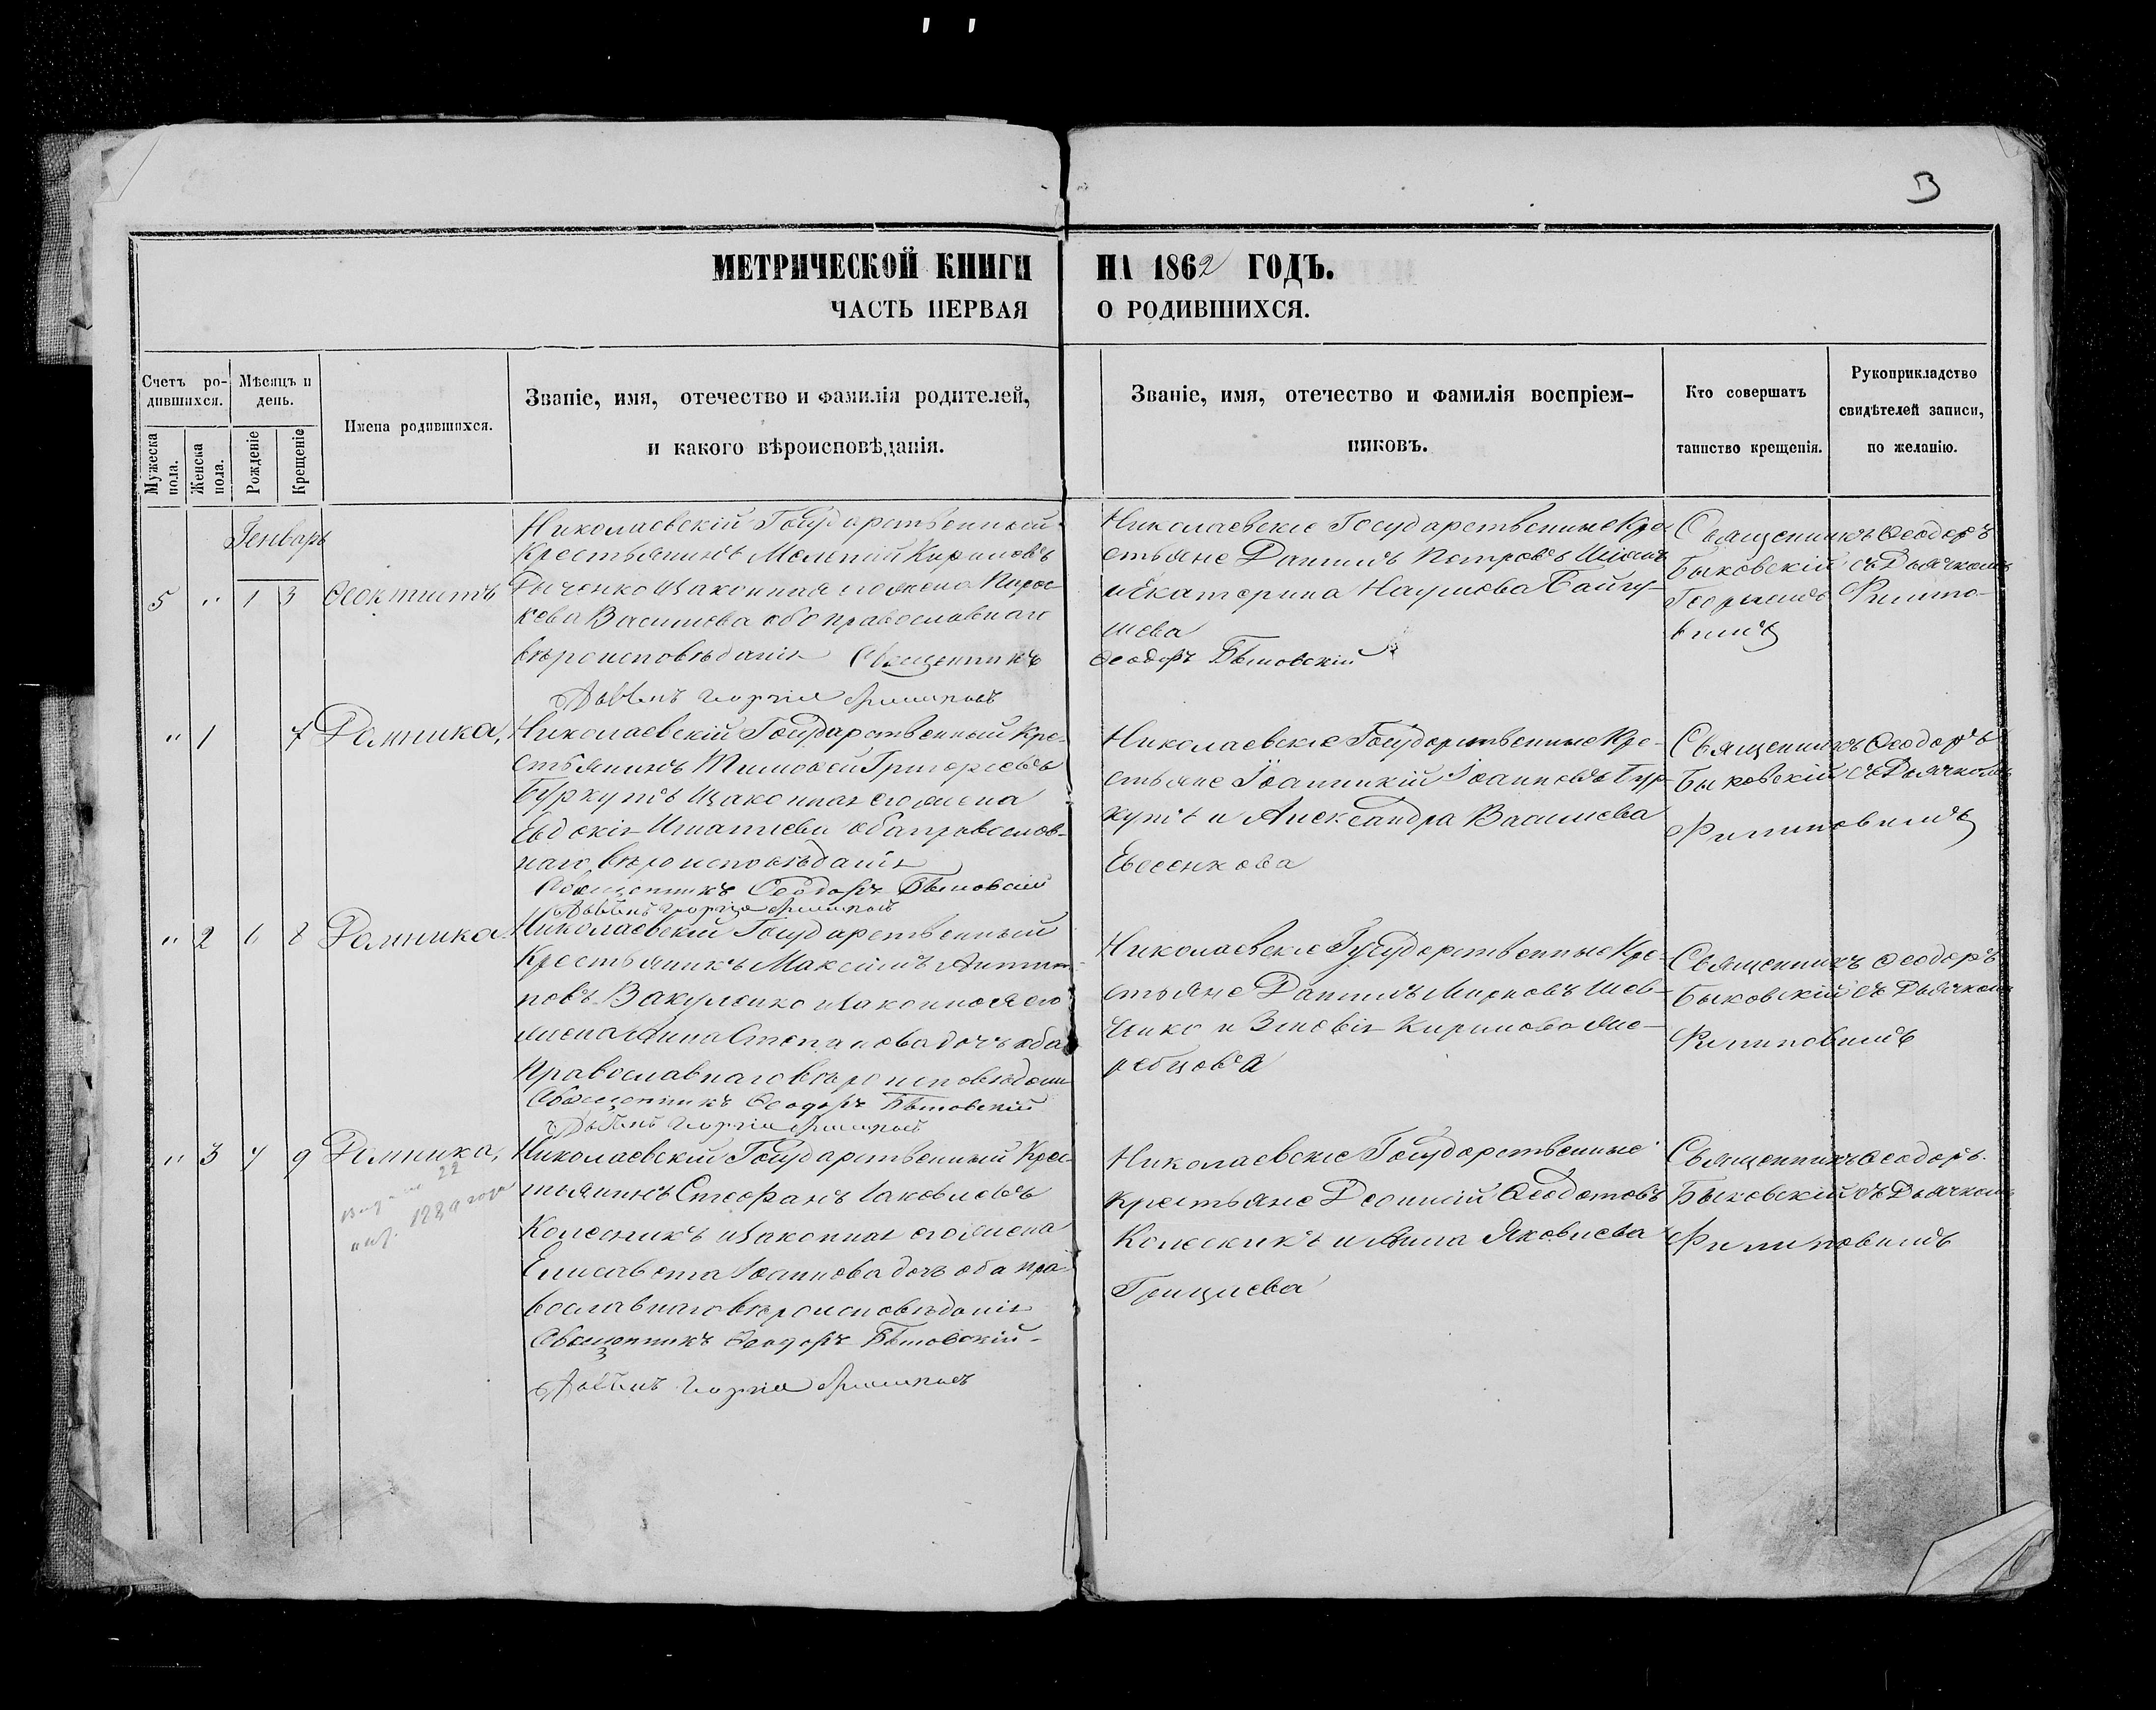 МЕТРИЧЕСКОЙ КНИГИ НА 1862 ГОДЪ.
ЧАСТЬ ПЕРВАЯ О РОДИВШИХСЯ.
Счетъ ро-
дившихся.
Мѣсяцъ и
день.
Мужеска
пола.
Женска
пола.
Рожденіе
Крещеніе
Имена родившихся.
Званіе, имя, отечество и фамилія родителей,
и какого вѣроисповѣданія.
Званіе, имя, отечество и фамилія воспріем-
никовъ.
Кто совершатъ
таинство крещенія.
Рукоприкладство
свидѣтелей записи,
по желанію.
Генварь
5 " 1 3 Ѳеоктистъ
Николаевскій Государственный
Крестьянинъ Мелетій Кириловъ
законная его жена Парас-
кева Васильева оба православнаго
вѣроисповѣданія Священникъ
Николаевскіе Государственные Кре-
стьяне Даніилъ Петровъ
и Екатерина Наумова
Ѳеодоръ Быковскій
Священникъ Ѳеодоръ
Быковскій съ Дьячкомъ
Георгіемъ Филипо-
вимъ
" 1 7 Домника,
Николаевскій Государственный Кре-
стьянинъ Тимоѳей Григорьевъ
Буркутъ и законная его жена
Евдокія Игнатиева оба православ-
наго вѣроисповѣданія
Священникъ Ѳеодоръ Быковскій
Николаевскіе Государственные Кре-
стьяне Іоанникій Іоанновъ Бур-
кутъ и Александра Василиева
Евсеенкова
Священникъ Ѳеодоръ
Быковскій съ Дьячкомъ
Филиповимъ
" 2 6 8 Домника
Николаевскій Государственный
Крестьянинъ Максимъ Антипо-
повъ Вакуленко и законная его
жена Анна Степанова дочь оба
Православнаго вѣроисповѣданія
Священникъ Ѳеодоръ Быковскій
Николаевскіе Государственные Кре-
стьяне Даніилъ Мироновъ Шев-
ченко и Зиновія Кирилова Же-
ребцова
Священникъ Ѳеодоръ
Быковскій съ Дьячкомъ
Филиповимъ
" 3 7 9 Домника,
22
Николаевскій Государственный Крес-
тьянинъ Стефанъ Іаковлевъ
Колесникъ и законная его жена
Елисавета Іоаннова дочь оба пра-
вославнаго вѣроисповѣданія
Священникъ Ѳеодоръ Быковскій
Николаевскіе Государственные
крестьяне Леонтій Ѳеодотовъ
Колесникъ и Анна Яковлева
Грицаева
Священникъ Ѳеодоръ
Быковскій съ Дьячкомъ
Филиповимъ